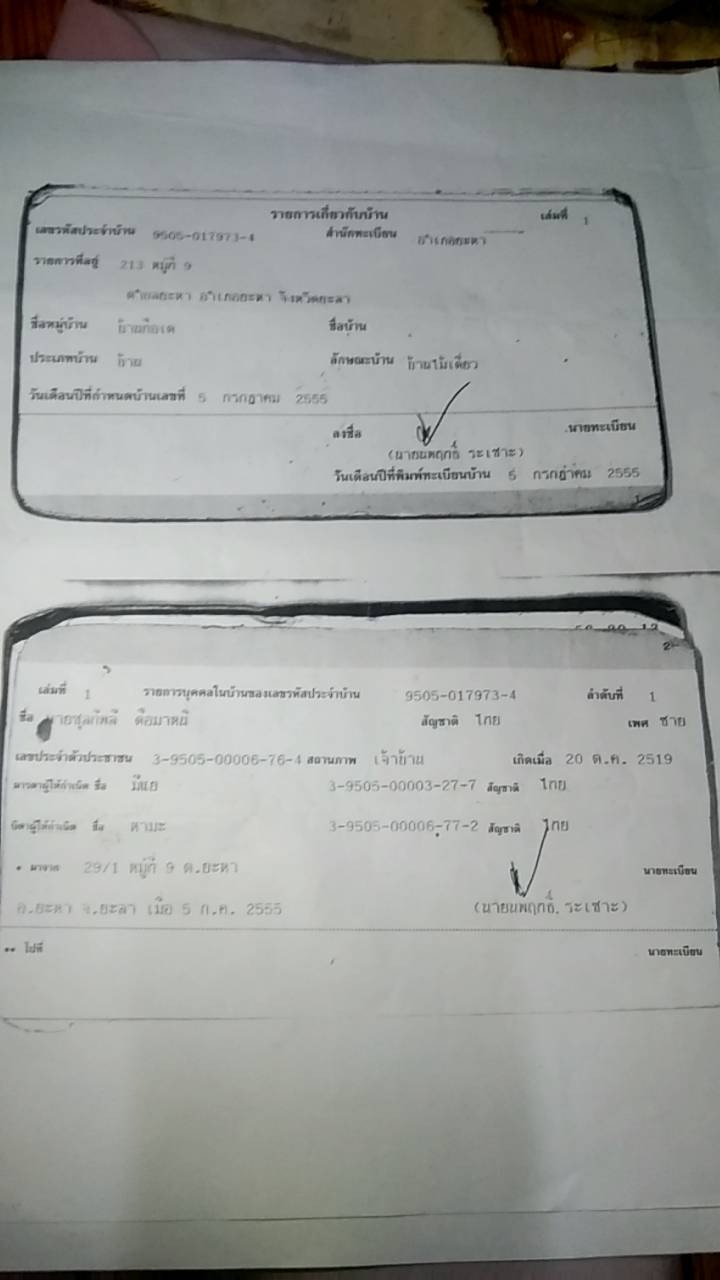 รายการเกี่ยวกับบ้าน เล่มที่ 1
เลขรหัสประจำบ้าน 9505-017973-4 สำนักทะเบียน อำเภอยะหา
รายการที่อยู่ 213 หมู่ที่ 9
ตำบลยะหา อำเภอยะหา จังหวัดยะลา
ชื่อหมู่บ้าน ชื่อบ้าน
ประเภทบ้าน บ้าน ลักษณะบ้าน บ้านไม้เดี่ยว
วันเดือนปีที่กำหนดบ้านเลขที่ 5 กรกฎาคม 2555
ลงชื่อ นายทะเบียน
(นายนพฤทธิ์ ระเซาะ)
วันเดือนปีที่พิมพ์ทะเบียนบ้าน 5 กรกฎาคม 2555
2
เล่มที่ 1 รายการบุคคลในบ้านของเลขรหัสประจำบ้าน 9505-017973-4 ลำดับที่ 1
ชื่อ สัญชาติ ไทย เพศ ชาย
เลขประจำตัวประชาชน 3-9505-00006-76-4 สถานภาพ เจ้าบ้าน เกิดเมื่อ 20 ต.ค. 2519
มารดาผู้ให้กำเนิด ชื่อ มีแย 3-9505-00003-27-7 สัญชาติ ไทย
บิดาผู้ให้กำเนิด ชื่อ 3-9505-00006-77-2 สัญชาติ ไทย
* มาจาก 29/1 หมู่ที่ 9 ต.ยะหา นายทะเบียน
อ.ยะหา จ.ยะลา เมื่อ 5 ก.ค. 2555 (นายนพฤทธิ์ ระเซาะ)
** ไปที่ นายทะเบียน